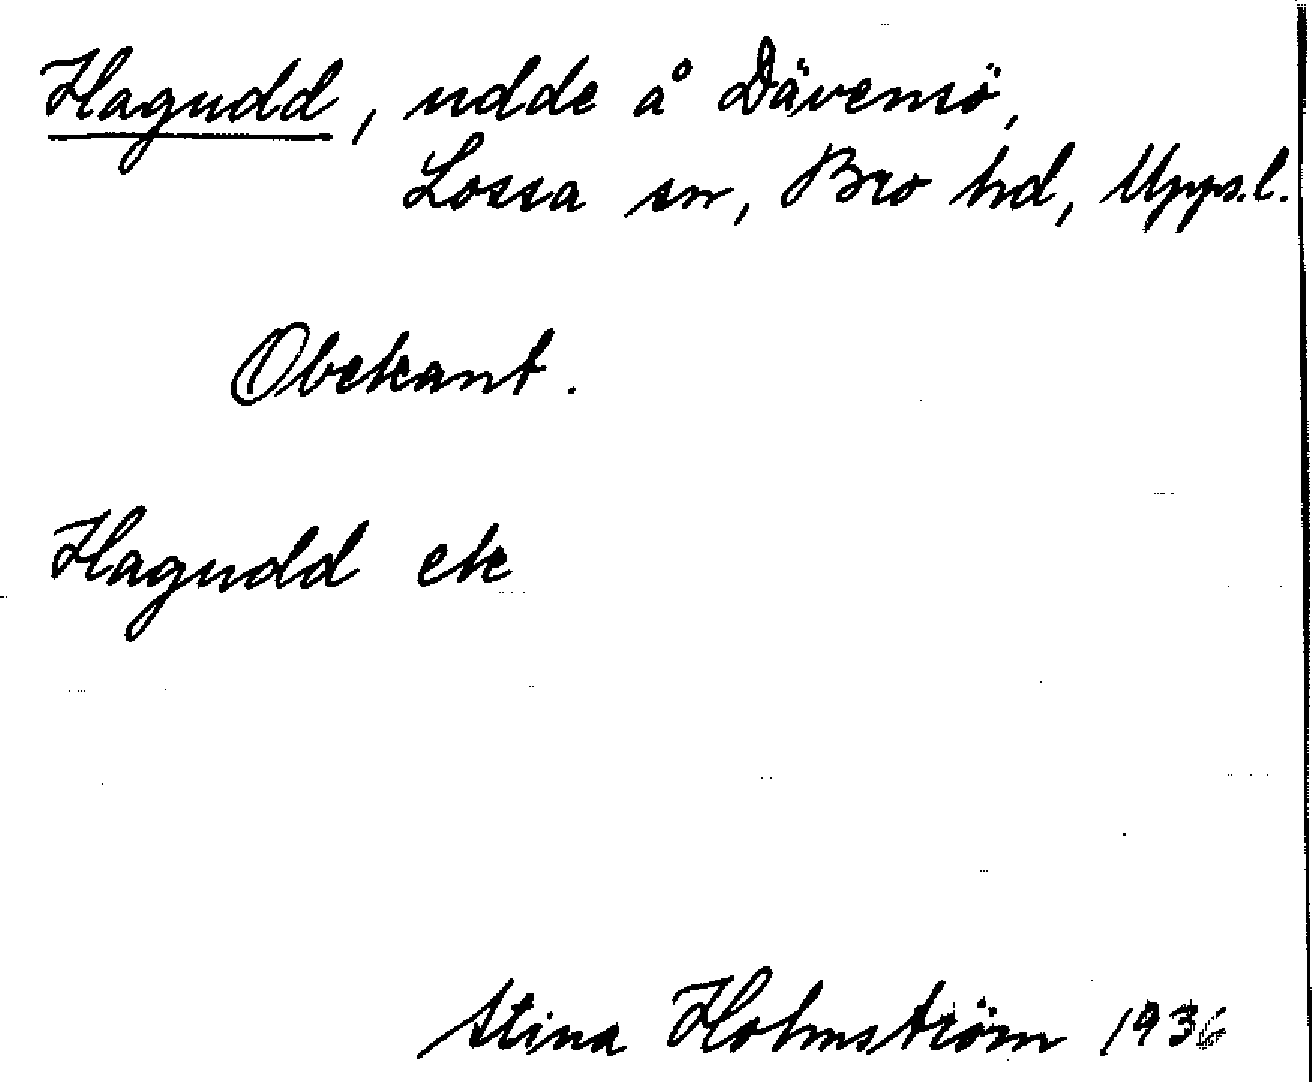 Hagudd, udde å Dävensö,
Lossa sn, Bro hd, Upps.l.
Obekant.
Hagudd ek
Stina Holmström 1936